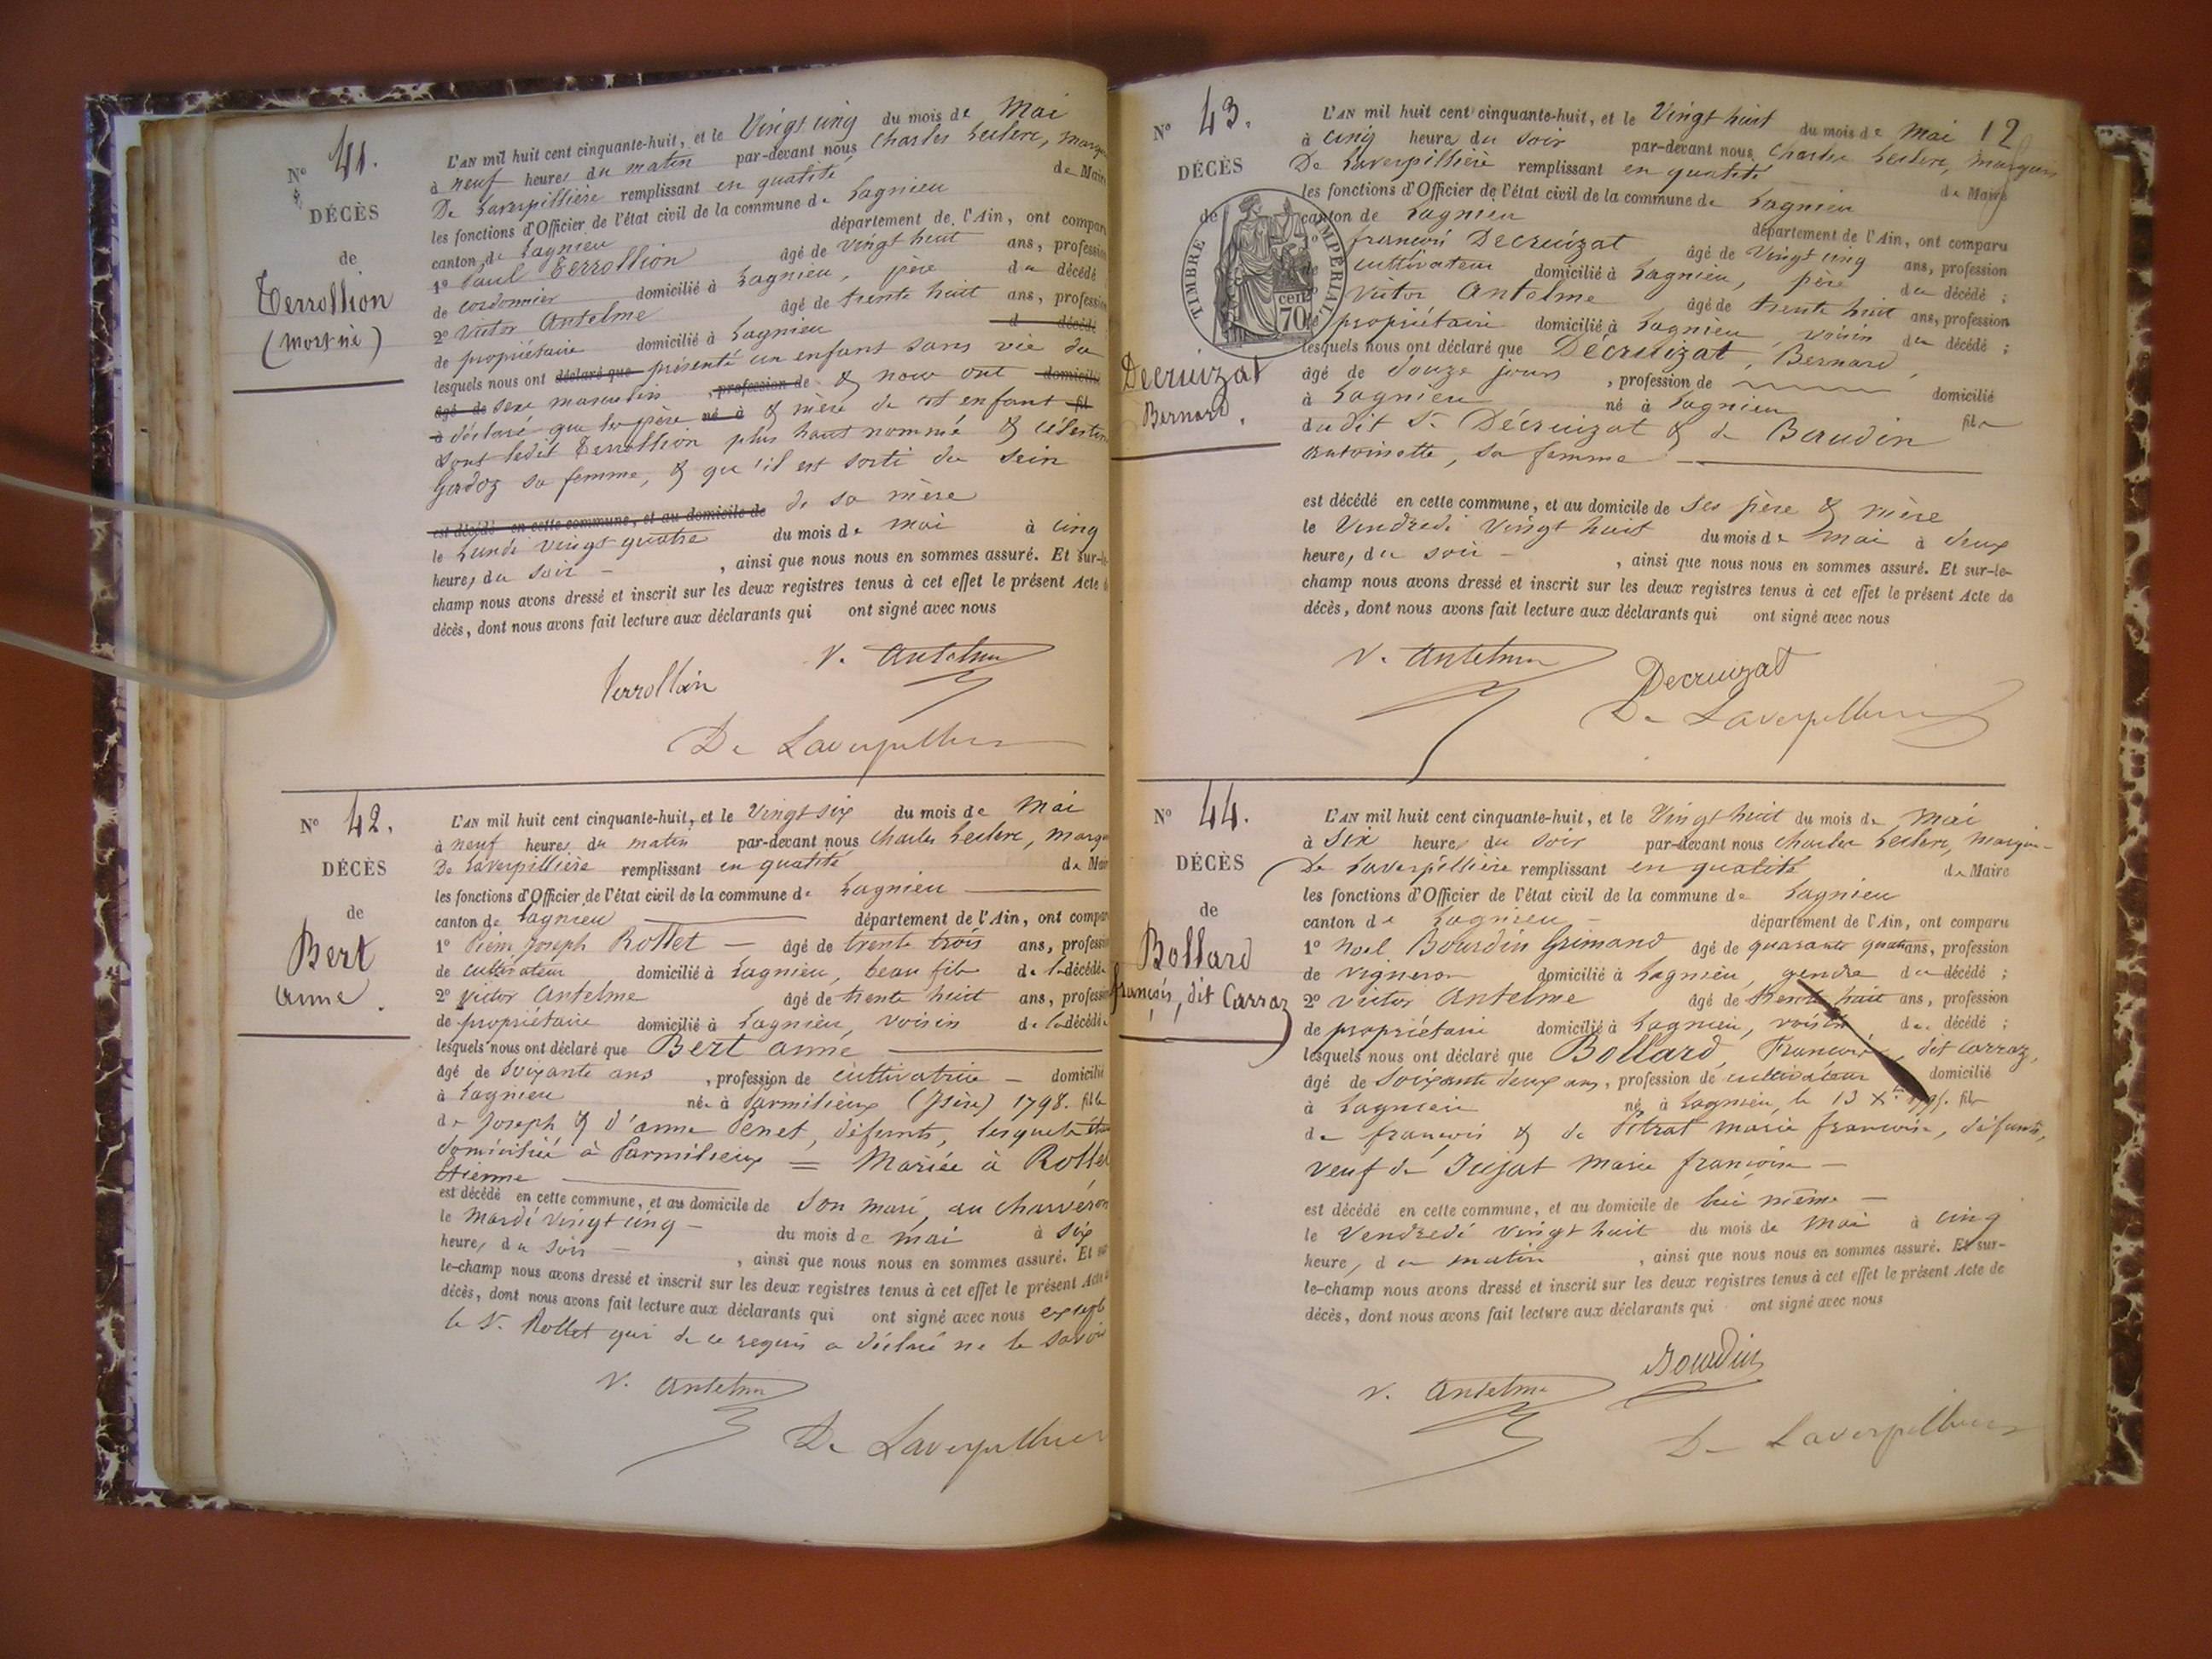 N° 41.
DÉCÈS
de
Terrollion
(mort né)
L'AN mil huit cent cinquante-huit, et le Vingt cinq du mois de Mai
à neuf heures du matin par-devant nous Charles Leclerc, marquis
De Laverpillière remplissant en qualité de Maire
les fonctions d'Officier de l'état civil de la commune de Lagnieu
canton de Lagnieu département de l'Ain, ont comparu
1° Paul Terrollion âgé de vingt huit ans, profession
de cordonnier domicilié à Lagnieu, père du décédé
2° Victor Antelme âgé de trente huit ans, profession
de propriétaire domicilié à Lagnieu d décédé
lesquels nous ont déclaré que présenté un enfant sans vie du
âgé de sexe masculin , profession de & nous ont domicilié
à déclaré que les père né à & mère de cet enfant fil
sont ledit Terrollion plus haut nommé & Célestine
sa femme, & qu'il est sorti du sein
de sa mère
est décédé en cette commune, et au domicile de
le Lundi vingt quatre du mois de mai à cinq
heures du soir , ainsi que nous nous en sommes assuré. Et sur-le-
champ nous avons dressé et inscrit sur les deux registres tenus à cet effet le présent Acte de
décès, dont nous avons fait lecture aux déclarants qui ont signé avec nous
V. Antelme
Terrollion
De Laverpillière
N° 42.
DÉCÈS
de
Bert
Anne.
L'AN mil huit cent cinquante-huit, et le Vingt six du mois de Mai
à neuf heures du matin par-devant nous Charles Leclerc, marquis
De Laverpillière remplissant en qualité de Maire
les fonctions d'Officier de l'état civil de la commune de Lagnieu
canton de Lagnieu département de l'Ain, ont comparu
1° Pierre Joseph Rollet âgé de trente trois ans, profession
de cultivateur domicilié à Lagnieu, beau fils de la décédée
2° Victor Antelme âgé de trente huit ans, profession
de propriétaire domicilié à Lagnieu, voisin de la décédée
lesquels nous ont déclaré que Bert Anne
âgé de soixante ans , profession de cultivatrice domicilié
à Lagnieu née à Parmilieux (Isère) 1798. fille
de Joseph & d'Anne Penet, défunts, lesquels
domiciliés à Parmilieux = Mariée à Rollet
Etienne
est décédé en cette commune, et au domicile de Son mari, au Charvéron
le Mardi vingt cinq du mois de mai à six
heures du soir , ainsi que nous nous en sommes assuré. Et sur-
le-champ nous avons dressé et inscrit sur les deux registres tenus à cet effet le présent Acte de
décès, dont nous avons fait lecture aux déclarants qui ont signé avec nous excepté
le Sr. Rollet qui de ce requis a déclaré ne le savoir
V. Antelme
De Laverpillière
12
N° 43.
DÉCÈS
de
TIMBRE IMPÉRIAL
70 cent
Decruizat
Bernard.
L'AN mil huit cent cinquante-huit, et le Vingt huit du mois de Mai
à cinq heures du soir par-devant nous Charles Leclerc, marquis
De Laverpillière remplissant en qualité de Maire
les fonctions d'Officier de l'état civil de la commune de Lagnieu
canton de Lagnieu département de l'Ain, ont comparu
1° françois Decruizat âgé de Vingt cinq ans, profession
de cultivateur domicilié à Lagnieu, père du décédé ;
2° Victor Antelme âgé de trente huit ans, profession
de propriétaire domicilié à Lagnieu, voisin du décédé ;
lesquels nous ont déclaré que Décruizat, Bernard,
âgé de douze jours , profession de domicilié
à Lagnieu né à Lagnieu fils
du dit Sr. Décruizat & de Baudin
Antoinette, sa femme
est décédé en cette commune, et au domicile de ses père & mère
le Vendredi Vingt huit du mois de mai à deux
heures du soir , ainsi que nous nous en sommes assuré. Et sur-le-
champ nous avons dressé et inscrit sur les deux registres tenus à cet effet le présent Acte de
décès, dont nous avons fait lecture aux déclarants qui ont signé avec nous
V. Antelme
Decruizat
De Laverpillière
N° 44.
DÉCÈS
de
Bollard
françois, dit Carraz
L'AN mil huit cent cinquante-huit, et le Vingt huit du mois de Mai
à six heures du soir par-devant nous Charles Leclerc, marquis
De Laverpillière remplissant en qualité de Maire
les fonctions d'Officier de l'état civil de la commune de Lagnieu
canton de Lagnieu département de l'Ain, ont comparu
1° Noel Bourdin Grimand âgé de quarante quatre ans, profession
de vigneron domicilié à Lagnieu, gendre du décédé ;
2° Victor Antelme âgé de trente huit ans, profession
de propriétaire domicilié à Lagnieu, voisin du décédé ;
lesquels nous ont déclaré que Bollard, François, dit Carraz,
âgé de soixante deux ans, profession de cultivateur domicilié
à Lagnieu né à Lagnieu, le 13 Xbre 1795. fils
de françois & de Pitrat Marie françoise, défunts,
veuf de Jujat Marie françoise
est décédé en cette commune, et au domicile de lui même
le Vendredi vingt huit du mois de Mai à cinq
heures du matin , ainsi que nous nous en sommes assuré. Et sur-
le-champ nous avons dressé et inscrit sur les deux registres tenus à cet effet le présent Acte de
décès, dont nous avons fait lecture aux déclarants qui ont signé avec nous
Bourdin
V. Antelme
De Laverpillière